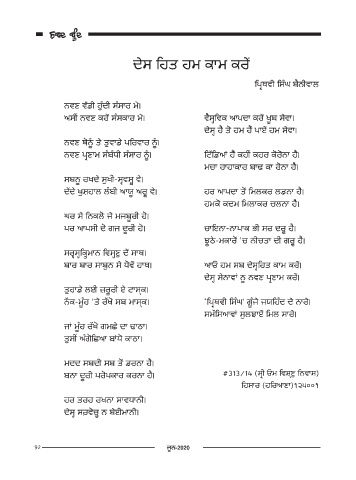 ਦੇਸ ਹਿਤ ਹਮ ਕਾਮ ਕਰੇਂ
ਪ੍ਰਿਥਵੀ ਸਿੰਘ ਬੈਨੀਵਾਲ
ਨਵਣ ਵੱਡੀ ਹੁੰਦੀ ਸੰਸਾਰ ਮੇ।
ਅਸੀਂ ਨਵਣ ਕਰੋਂ ਸੰਸਕਾਰ ਮੇ।
ਨਵਣ ਥੋਨੂੰ ਤੇ ਤੁਵਾਡੇ ਪਰਿਵਾਰ ਨੂੰ।
ਨਵਣ ਪ੍ਰਣਾਮ ਸੰਬੰਧੀ ਸੰਸਾਰ ਨੂੰ।
ਸਬਨੂ ਰਖਦੇ ਸੁਖੀ-ਸ੍ਵਸਥ ਵੇ।
ਦੇਂਦੇ ਖੁਸ਼ਹਾਲ ਲੰਬੀ ਆਯੂ
ਘਰ ਸੇ ਨਿਕਲੋ ਜੋ ਮਜਬੂਰੀ ਹੋ।
ਪਰ ਆਪਸੀ ਦੋ ਗਜ ਦੂਰੀ ਹੋ।
ਬਾਰ ਬਾਰ ਸਾਬੁਨ ਸੇ ਧੋਵੋਂ ਹਾਥ।
ਤੁਹਾਡੇ ਲਈ ਜ਼ਰੂਰੀ ਏ ਟਾਸਕ।
ਨੱਕ-ਮੂੰਹ 'ਤੇ ਰੱਖੋ ਸਬ ਮਾਸਕ।
ਜਾਂ ਮੂੰਹ ਰੱਖੋ ਗਮਛੇ ਦਾ ਢਾਠਾ।
ਤੁਸੀਂ ਅੰਗੋਛਿਆ ਬਾਂਧੋ ਕਾਠਾ।
ਮਦਦ ਸਬਦੀ ਸਬ ਤੋਂ ਡਰਨਾ ਹੈ।
ਬਨਾ ਦੂਰੀ ਪਰੋਪਕਾਰ ਕਰਨਾ ਹੈ।
ਹਰ ਤਰਹ ਰਖਨਾ ਸਾਵਧਾਨੀ।
ਦੇਸ੍ ਨ ਬੇਈਮਾਨੀ।
ਵੈਸ੍ਵਿਕ ਆਪਦਾ ਕਰੋਂ ਖੂਬ ਸੇਵਾ।
ਦੇਸ੍ ਹੈ ਤੋ ਹਮ ਹੈਂ ਪਾਏਂ ਹਮ ਸੇਵਾ।
ਟਿੱਡਿਆਂ ਹੈਂ ਕਹੀਂ ਕਹਰ ਕੋਰੋਨਾ ਹੈ।
ਮਚਾ ਹਾਹਾਕਾਰ ਬਾਢ ਕਾ ਰੋਨਾ ਹੈ।
ਹਰ ਆਪਦਾ ਤੋਂ ਮਿਲਕਰ ਲਡਨਾ ਹੈ।
ਹਮਕੋ ਕਦਮ ਮਿਲਾਕਰ ਚਲਨਾ ਹੈ।
ਚਾਇਨਾ-ਨਾਪਾਕ ਭੀ ਸਰ ਦਰ੍ਦ ਹੈ।
ਝੂਠੇ-ਮਕਾਰੋਂ 'ਚ ਨੀਚਤਾ ਦੀ ਗਰ੍ਦ ਹੈ।
ਆਓ ਹਮ ਸਬ ਦੇਸ੍ਹਿਤ ਕਾਮ ਕਰੇਂ।
ਦੇਸ੍ ਸੇਨਾਵਾਂ ਨੂ ਨਵਣ ਪ੍ਰਣਾਮ ਕਰੇਂ।
'ਪ੍ਰਿਥਵੀ ਸਿੰਘ' ਗੂੰਜੇ ਜਯਹਿੰਦ ਦੇ ਨਾਰੇ।
ਸਮੱਸਿਆਵਾਂ ਸੁਲਝਾਏਂ ਮਿਲ ਸਾਰੇ।
#313/14 (ਸ੍ਰੀ ਓਮ ਵਿਸ਼ਣੂ ਨਿਵਾਸ)
ਹਿਸਾਰ (ਹਰਿਆਣਾ)੧੨੫੦੦੧
ਜੂਨ-2020